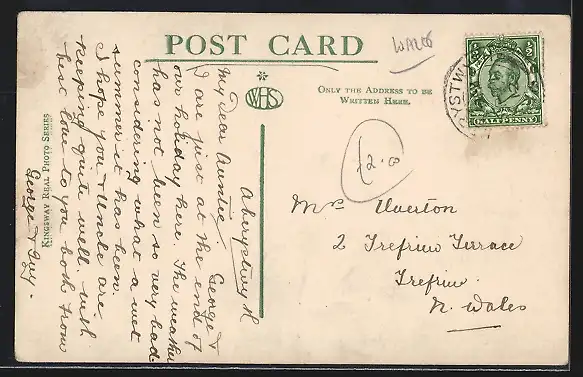 POST CARD
WALES
WHS
ONLY THE ADDRESS TO BE
WRITTEN HERE.
HALFPENNY
£2.0
Mrs Elverton
2 Trefriw Terrace
Trefriw
N. Wales
KINGSWAY REAL PHOTO SERIES
Aberystwyth
My dear Auntie. George &
I are just at the end of
our holiday here. The weather
has not been so very bad
considering what a wet
summer it has been.
I hope you & Uncle are
keeping quite well. with
best love to you both from
George &